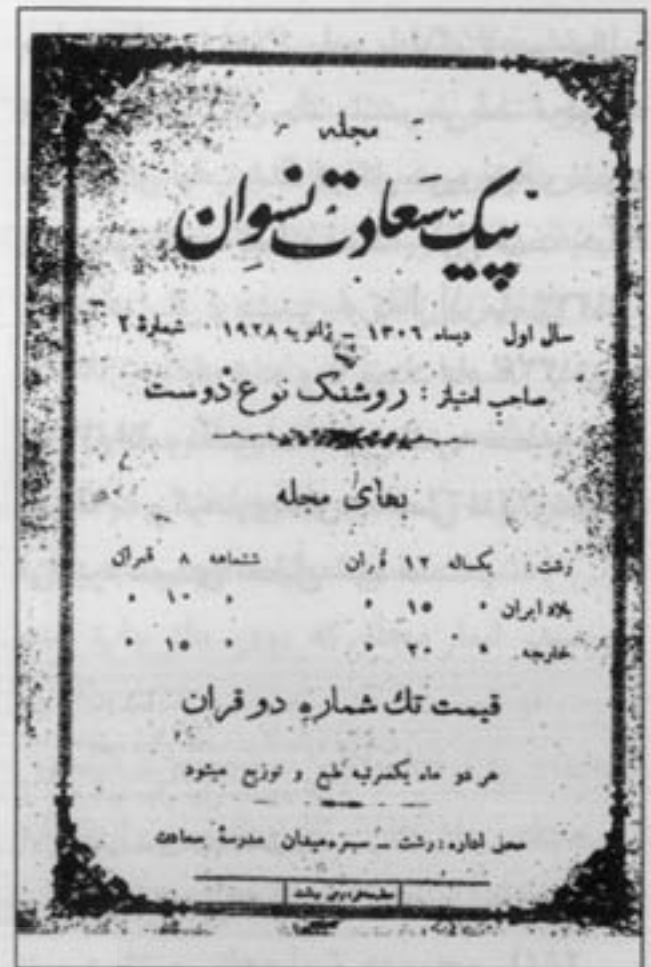 مجله
پیک سعادت نسوان
سال اول دیماه ۱۳۰۶ – ژانویه ۱۹۲۸ شمارهٔ ۲
صاحب امتیاز : روشنک نوع دوست
بهای مجله
رشت : یکساله ۱۲ قران ششماهه ۸ قران
بلاد ایران » ۱۵ » » ۱۰ »
خارجه » ۲۰ » » ۱۵ »
قیمت تك شماره دو قران
هر دو ماه یکمرتبه طبع و توزیع میشود
محل اداره : رشت – سبزه میدان مدرسهٔ سعادت